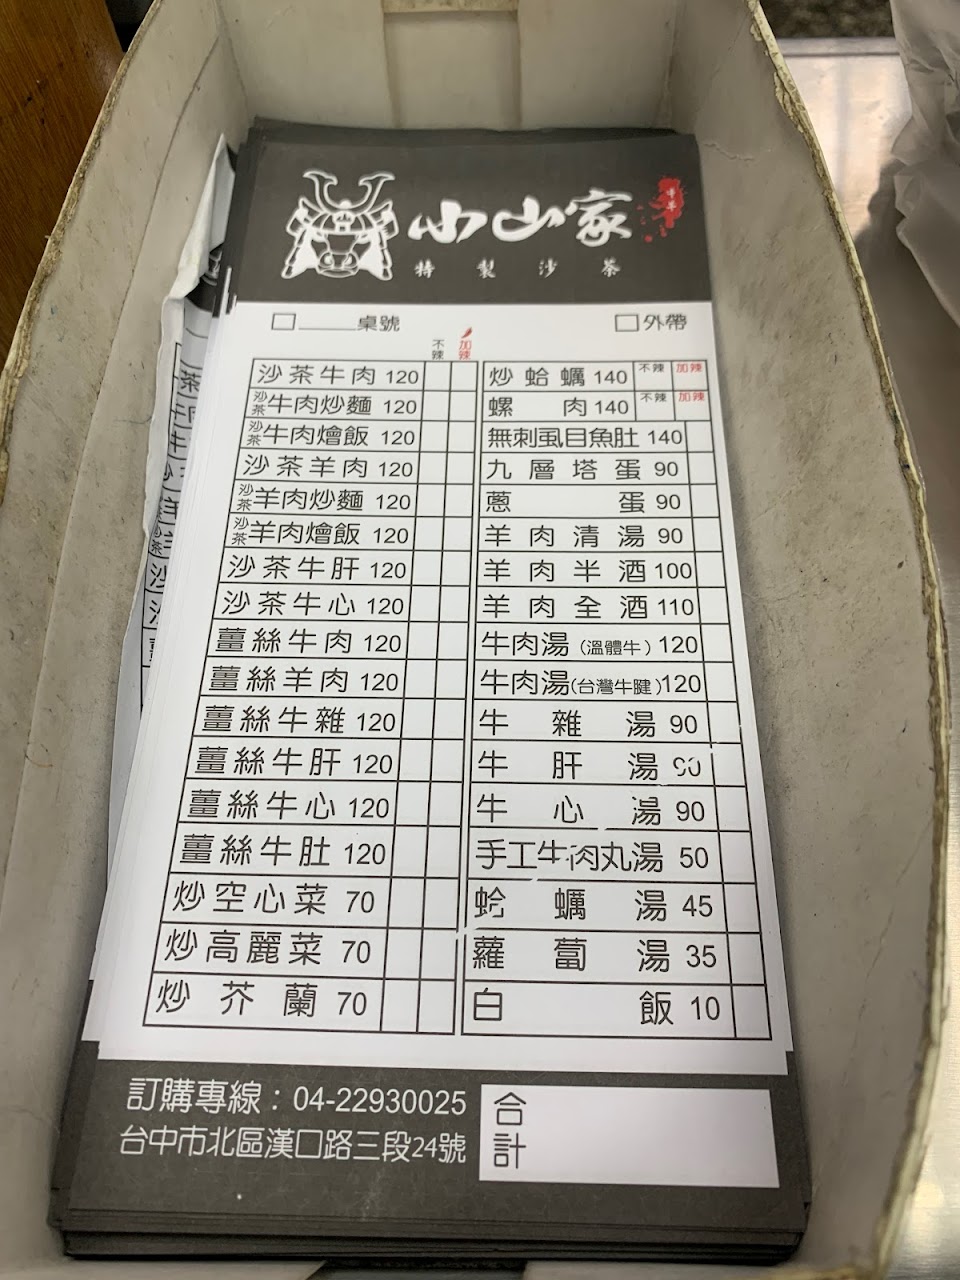 小山家
特製沙茶
桌號
外帶
不辣 加辣
沙茶牛肉 120
沙茶牛肉炒麵 120
沙茶牛肉燴飯 120
沙茶羊肉 120
沙茶羊肉炒麵 120
沙茶羊肉燴飯 120
沙茶牛肝 120
沙茶牛心 120
薑絲牛肉 120
薑絲羊肉 120
薑絲牛雜 120
薑絲牛肝 120
薑絲牛心 120
薑絲牛肚 120
炒空心菜 70
炒高麗菜 70
炒芥蘭 70
炒蛤蠣 140 不辣 加辣
螺肉 140 不辣 加辣
無刺虱目魚肚 140
九層塔蛋 90
蔥蛋 90
羊肉清湯 90
羊肉半酒 100
羊肉全酒 110
牛肉湯（溫體牛）120
牛肉湯(台灣牛腱)120
牛雜湯 90
牛肝湯 90
牛心湯 90
手工牛肉丸湯 50
蛤蠣湯 45
蘿蔔湯 35
白飯 10
訂購專線：04-22930025
台中市北區漢口路三段24號
合計